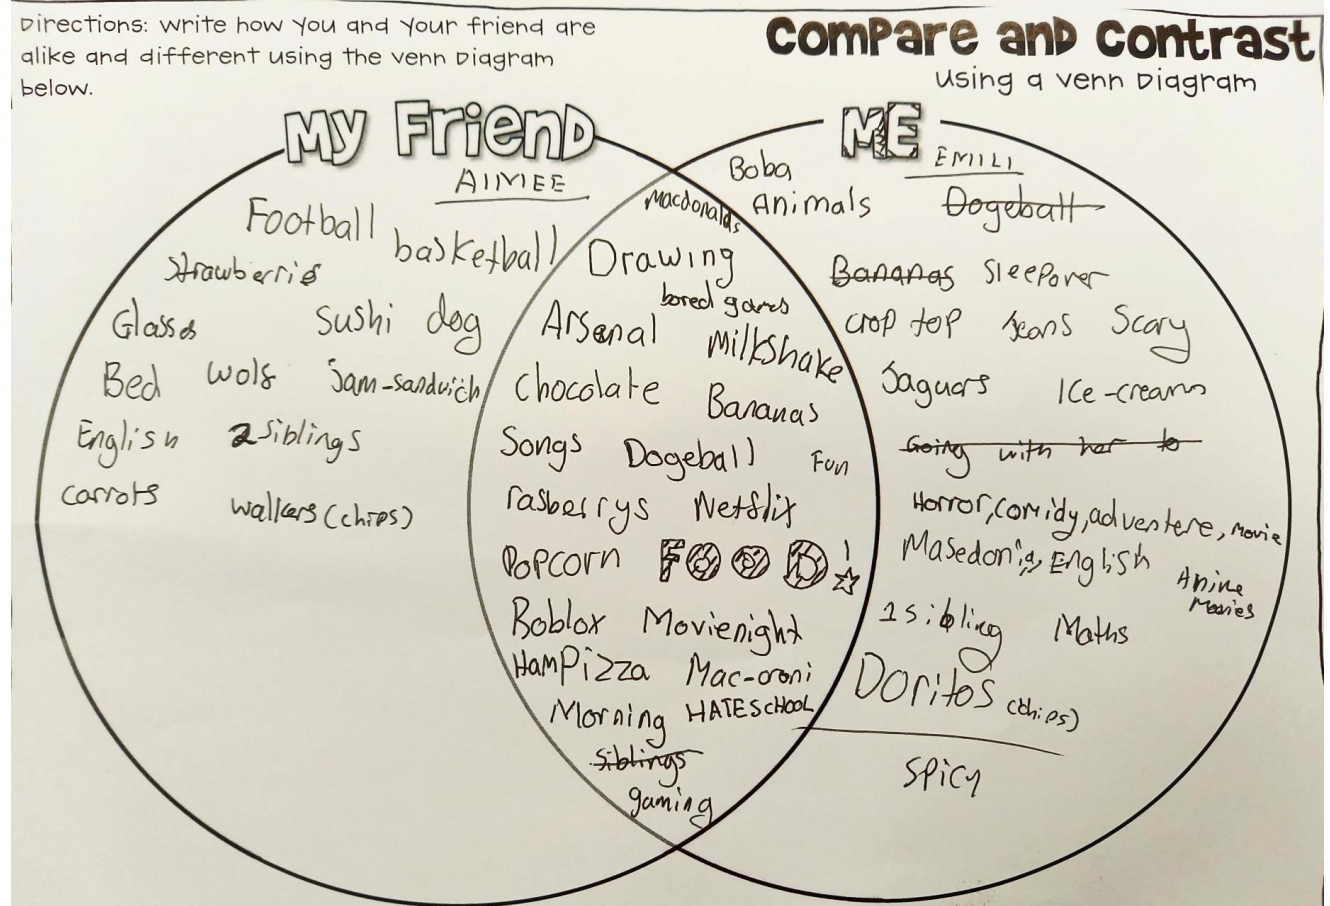 Directions: Write how you and your friend are
alike and different using the Venn Diagram
below.
Compare and Contrast
using a Venn Diagram
My Friend
AIMEE
Football
basketball
strawberris
Glasses
Sushi dog
Bed
wolf
Jam-sandwich
English
2 siblings
carrots
walkers (chips)
Macdonalds
Drawing
bored games
Arsenal
Milkshake
chocolate
Bananas
Songs
Dogeball
Fun
rasberrys
Netflix
Popcorn
FOOD!
Roblox
Movienight
Ham Pizza
Mac-oroni
Morning
HATE SCHOOL
siblings
gaming
ME
EMILI
Boba
Animals
Dogeball
Bananas
Sleepover
crop top
Jeans
Scary
Jaguars
Ice-creams
Going with her to
Horror, comidy, adventere, movie
Masedonia, English
Anime
Movies
1 sibling
Maths
Doritos (chips)
Spicy